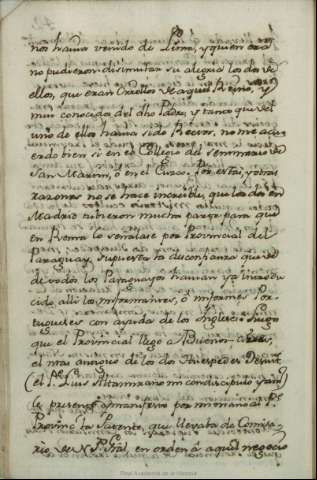 nos havia venido de Lima, y quien era
no pudieron disimular su alegria los dos de
ellos, que eran Criollos de aquel Reino, y
mui conocidos del dho Padre, y tanto que del
uno de ellos havia sido Rector, no me acu
erdo bien si en el Collegio del Seminario de
San Martin, ó en el Cuzco. Por estas, y otras
razones no se hace increible, que los dos en
Madrid tubieron mucha parte para que
en Roma lo señalase por Provincial del
Paraguay, supuesta la desconfianza que de
de todos los Paraguayos havian ya introdu
cido alli los informantes, ó informes Por-
tugueses con ayuda de los Ingleses. Luego
que el Provincial llegó a Buenos Aires,
el mas antiguo de los dos Huespedes Jesuit
(el Pe. Luis Altamirano mi condiscipulo y am
le presentó manifiesto por mi mano al Pe.
Provincl. la Patente, que llevaba de Comisa-
rio de N. P. Gral, en orden á aquel negocio
Real Academia de la Historia